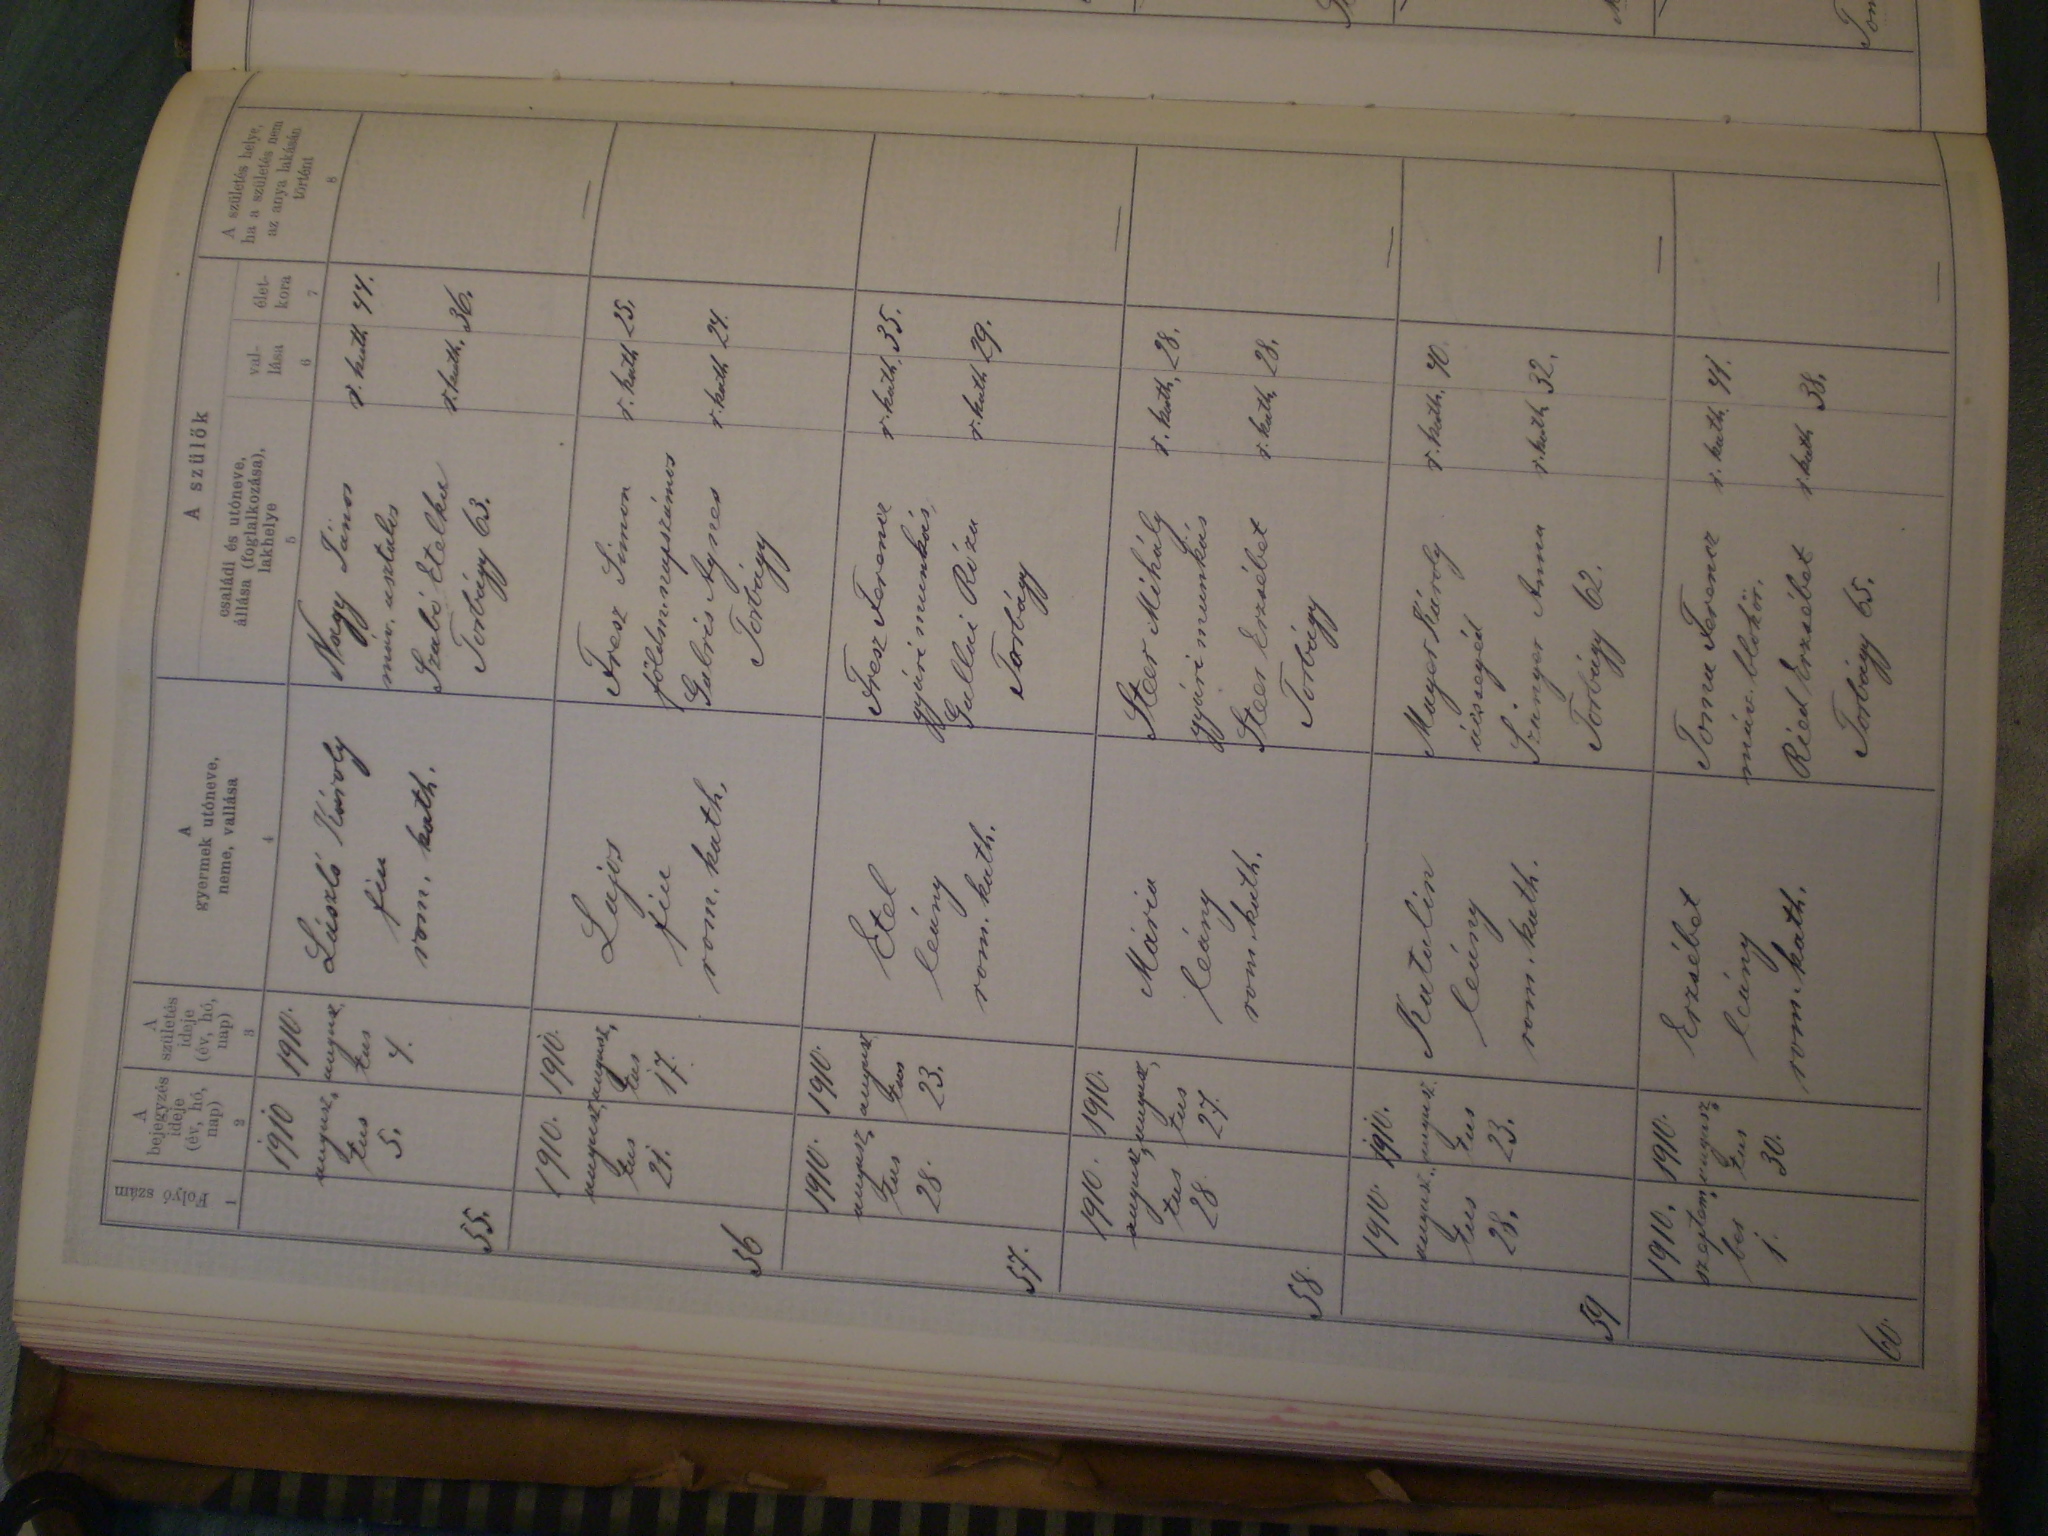 1
Folyó szám
2
A
bejegyzés
ideje
(év, hó,
nap)
3
A
születés
ideje
(év, hó,
nap)
4
A
gyermek utóneve,
neme, vallása
A szülők
5
családi és utóneve,
állása (foglalkozása),
lakhelye
6
val-
lása
7
élet-
kora
8
A születés helye,
ha a születés nem
az anya lakásán
történt
55.
1910
augusz,
tus
5.
1910.
augusz,
tus
4.
László Károly
fiu
rom. kath.
Nagy János
máv. asztalos
Szabó Etelka
Torbágy 63.
r. kath. 44.
r. kath. 36.
56
1910.
augusz,
tus
21.
1910.
augusz,
tus
17.
Lajos
fiu
rom. kath.
Fresz Simon
földm. napszámos
Gabris Ágnes
Torbágy
r. kath. 25.
r. kath. 24.
—
57.
1910.
augusz,
tus
28.
1910.
augusz,
tus
23.
Etel
leány
rom. kath.
Fresz Ferencz
gyári munkás,
Gallai Róza
Torbágy
r. kath. 35.
r. kath. 29.
—
58.
1910.
augusz,
tus
28.
1910.
augusz,
tus
27.
Mária
leány
rom. kath.
Steer Mihály
gyári munkás
Steer Erzsébet
Torbágy
r. kath. 28.
r. kath. 28.
—
59
1910.
augusz.
tus
28.
1910.
augusz.
tus
23.
Katalin
leány
rom. kath.
Mayer Károly
ácssegéd
Szinger Anna
Torbágy 62.
r. kath. 40.
r. kath. 32.
—
60.
1910.
szeptem,
ber
1.
1910.
augusz,
tus
30.
Erzsébet
leány
rom. kath.
Toma Ferencz
máv. blokőr.
Ried Erzsébet
Torbágy 65.
r. kath. 41.
r. kath. 38.
—